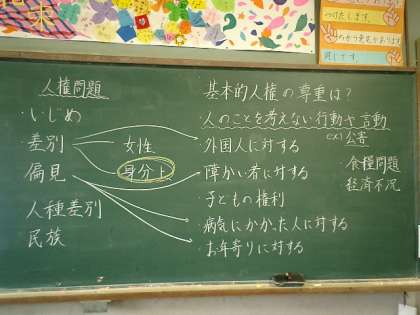 人権問題
・いじめ
・差別
偏見
人種差別
民族
女性
身分ト
基本的人権の尊重は?
人のことを考えない行動や言動
ex) 公害
・外国人に対する
・障がい者に対する
・子どもの権利
・病気にかかった人に対する
・お年寄りに対する
・食糧問題
経済不況
つけたします。
同じです。